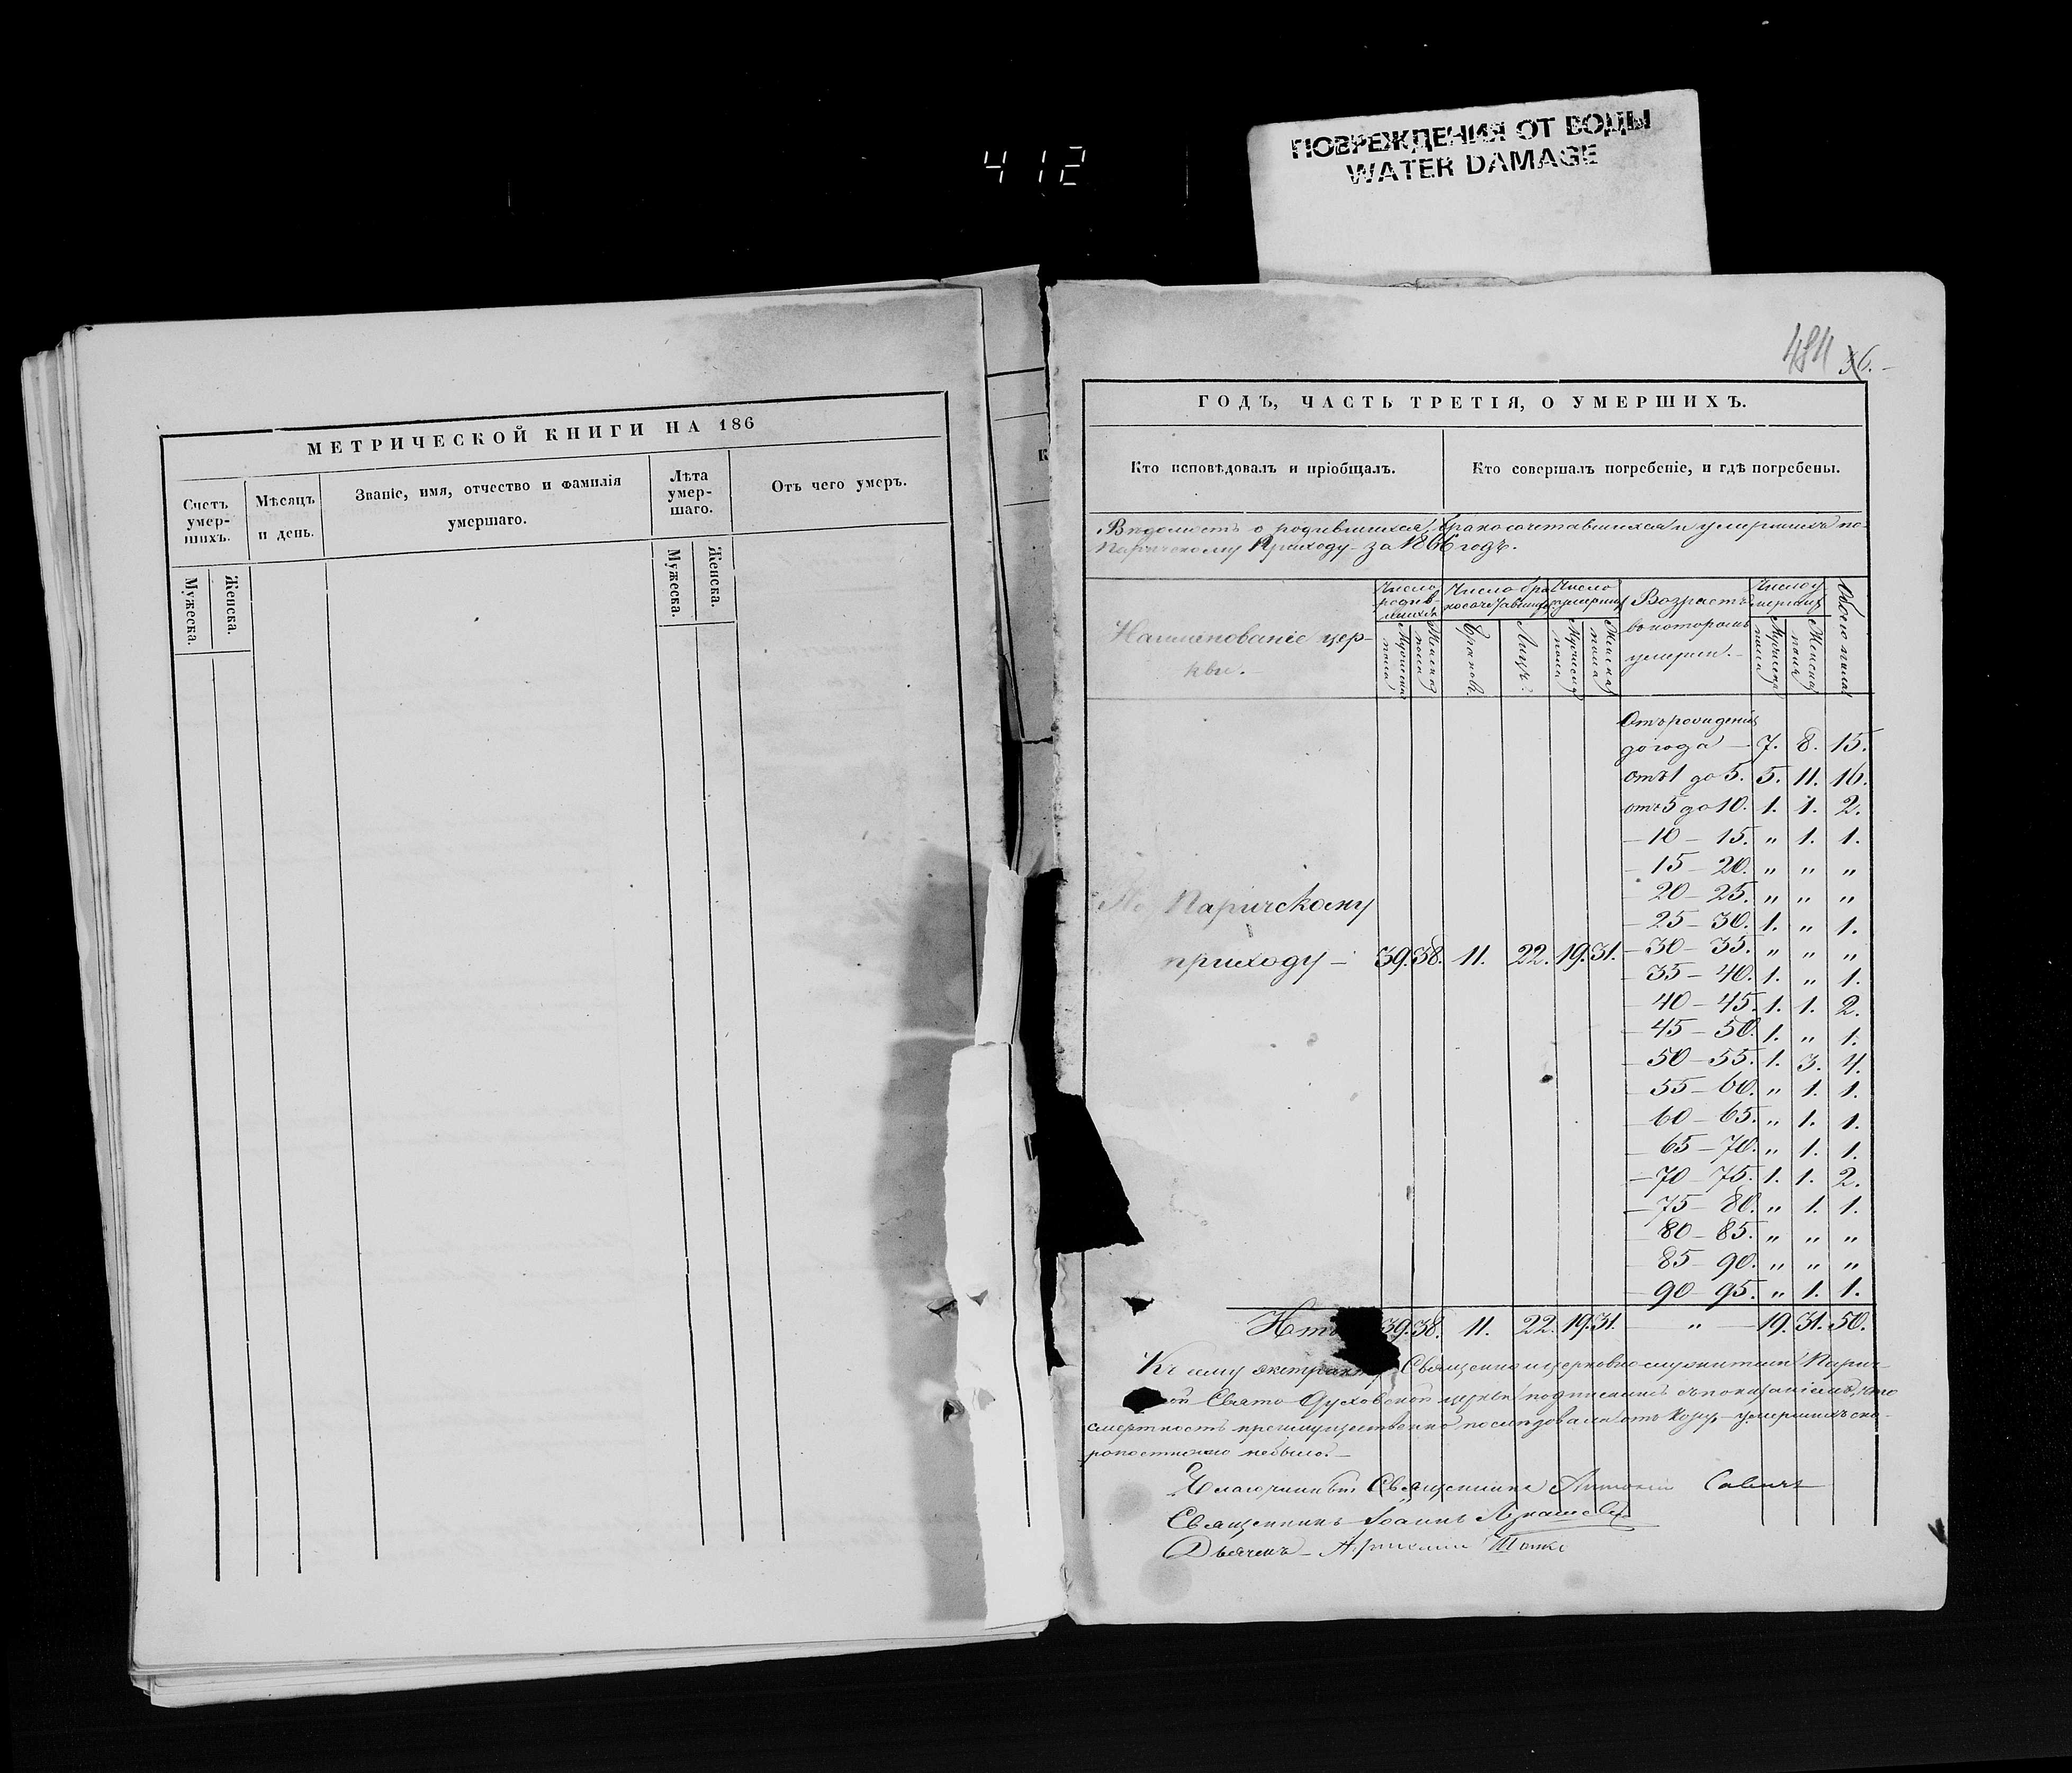 412
ПОВРЕЖДЕНИЯ ОТ ВОДЫ
WATER DAMAGE
МЕТРИЧЕСКОЙ КНИГИ НА 186
Счетъ умер- шихъ.
Мѣсяцъ и день.
Званіе, имя, отчество и фамилія умершаго.
Лѣта умер- шаго.
Отъ чего умеръ.
Мужеска.
Женска.
Мужеска.
Женска.
6.
ГОДЪ, ЧАСТЬ ТРЕТІЯ, О УМЕРШИХЪ.
Кто исповѣдовалъ и пріобщалъ.
Кто совершалъ погребеніе, и гдѣ погребены.
Вѣдомость о родившихся, бракосочетавшихся и умершихъ по
Паричскому Приходу за 1866 годъ.
Наименованіе цер-
кви.
Число родив- шихся
Число бра косочетавших
Число умерших
Возрастъ въ которомъ умерли.
Число умерших
Обоего пола
Мужеска пола
Женска пола
Браковъ
Лицъ
Мужеска пола
Женска пола
Мужеска пола
Женска пола
Отъ рожденія
до года — 7. 8. 15.
отъ 1 до 5. 5. 11. 16.
отъ 5 до 10. 1. 1. 2.
— 10 — 15. „ 1. 1.
— 15 — 20. „ „ „
20 — 25. „ „ „
— 25 — 30. 1. „ 1.
По Паричскому
приходу — 39. 38. 11. 22. 19. 31. — 30 — 35. „ „ „
— 35 — 40. 1. „ 1.
— 40 — 45. 1. 1. 2.
— 45 — 50. 1. „ 1.
— 50 — 55. 1. 3. 4.
— 55 — 60. „ 1. 1.
— 60 — 65. „ 1. 1.
— 65 — 70. „ 1. 1.
— 70 — 75. 1. 1. 2.
— 75 — 80. „ 1. 1.
— 80 — 85. „ „ „
— 85 — 90. „ „ „
— 90 — 95. „ 1. 1.
Ит 39. 38. 11. 22. 19. 31. — „ — 19. 31. 50.
Къ сему экстракту Священно и церковнослужители Парич-
ой Свято Духовской церкви подписками съ показаніемъ, что
смертность преимущественно послѣдовала отъ умершихъ ско-
ропостижно небыло. —
Благочинный Священникъ Антоній Савичъ
Священникъ Іоаннъ
Дьячекъ